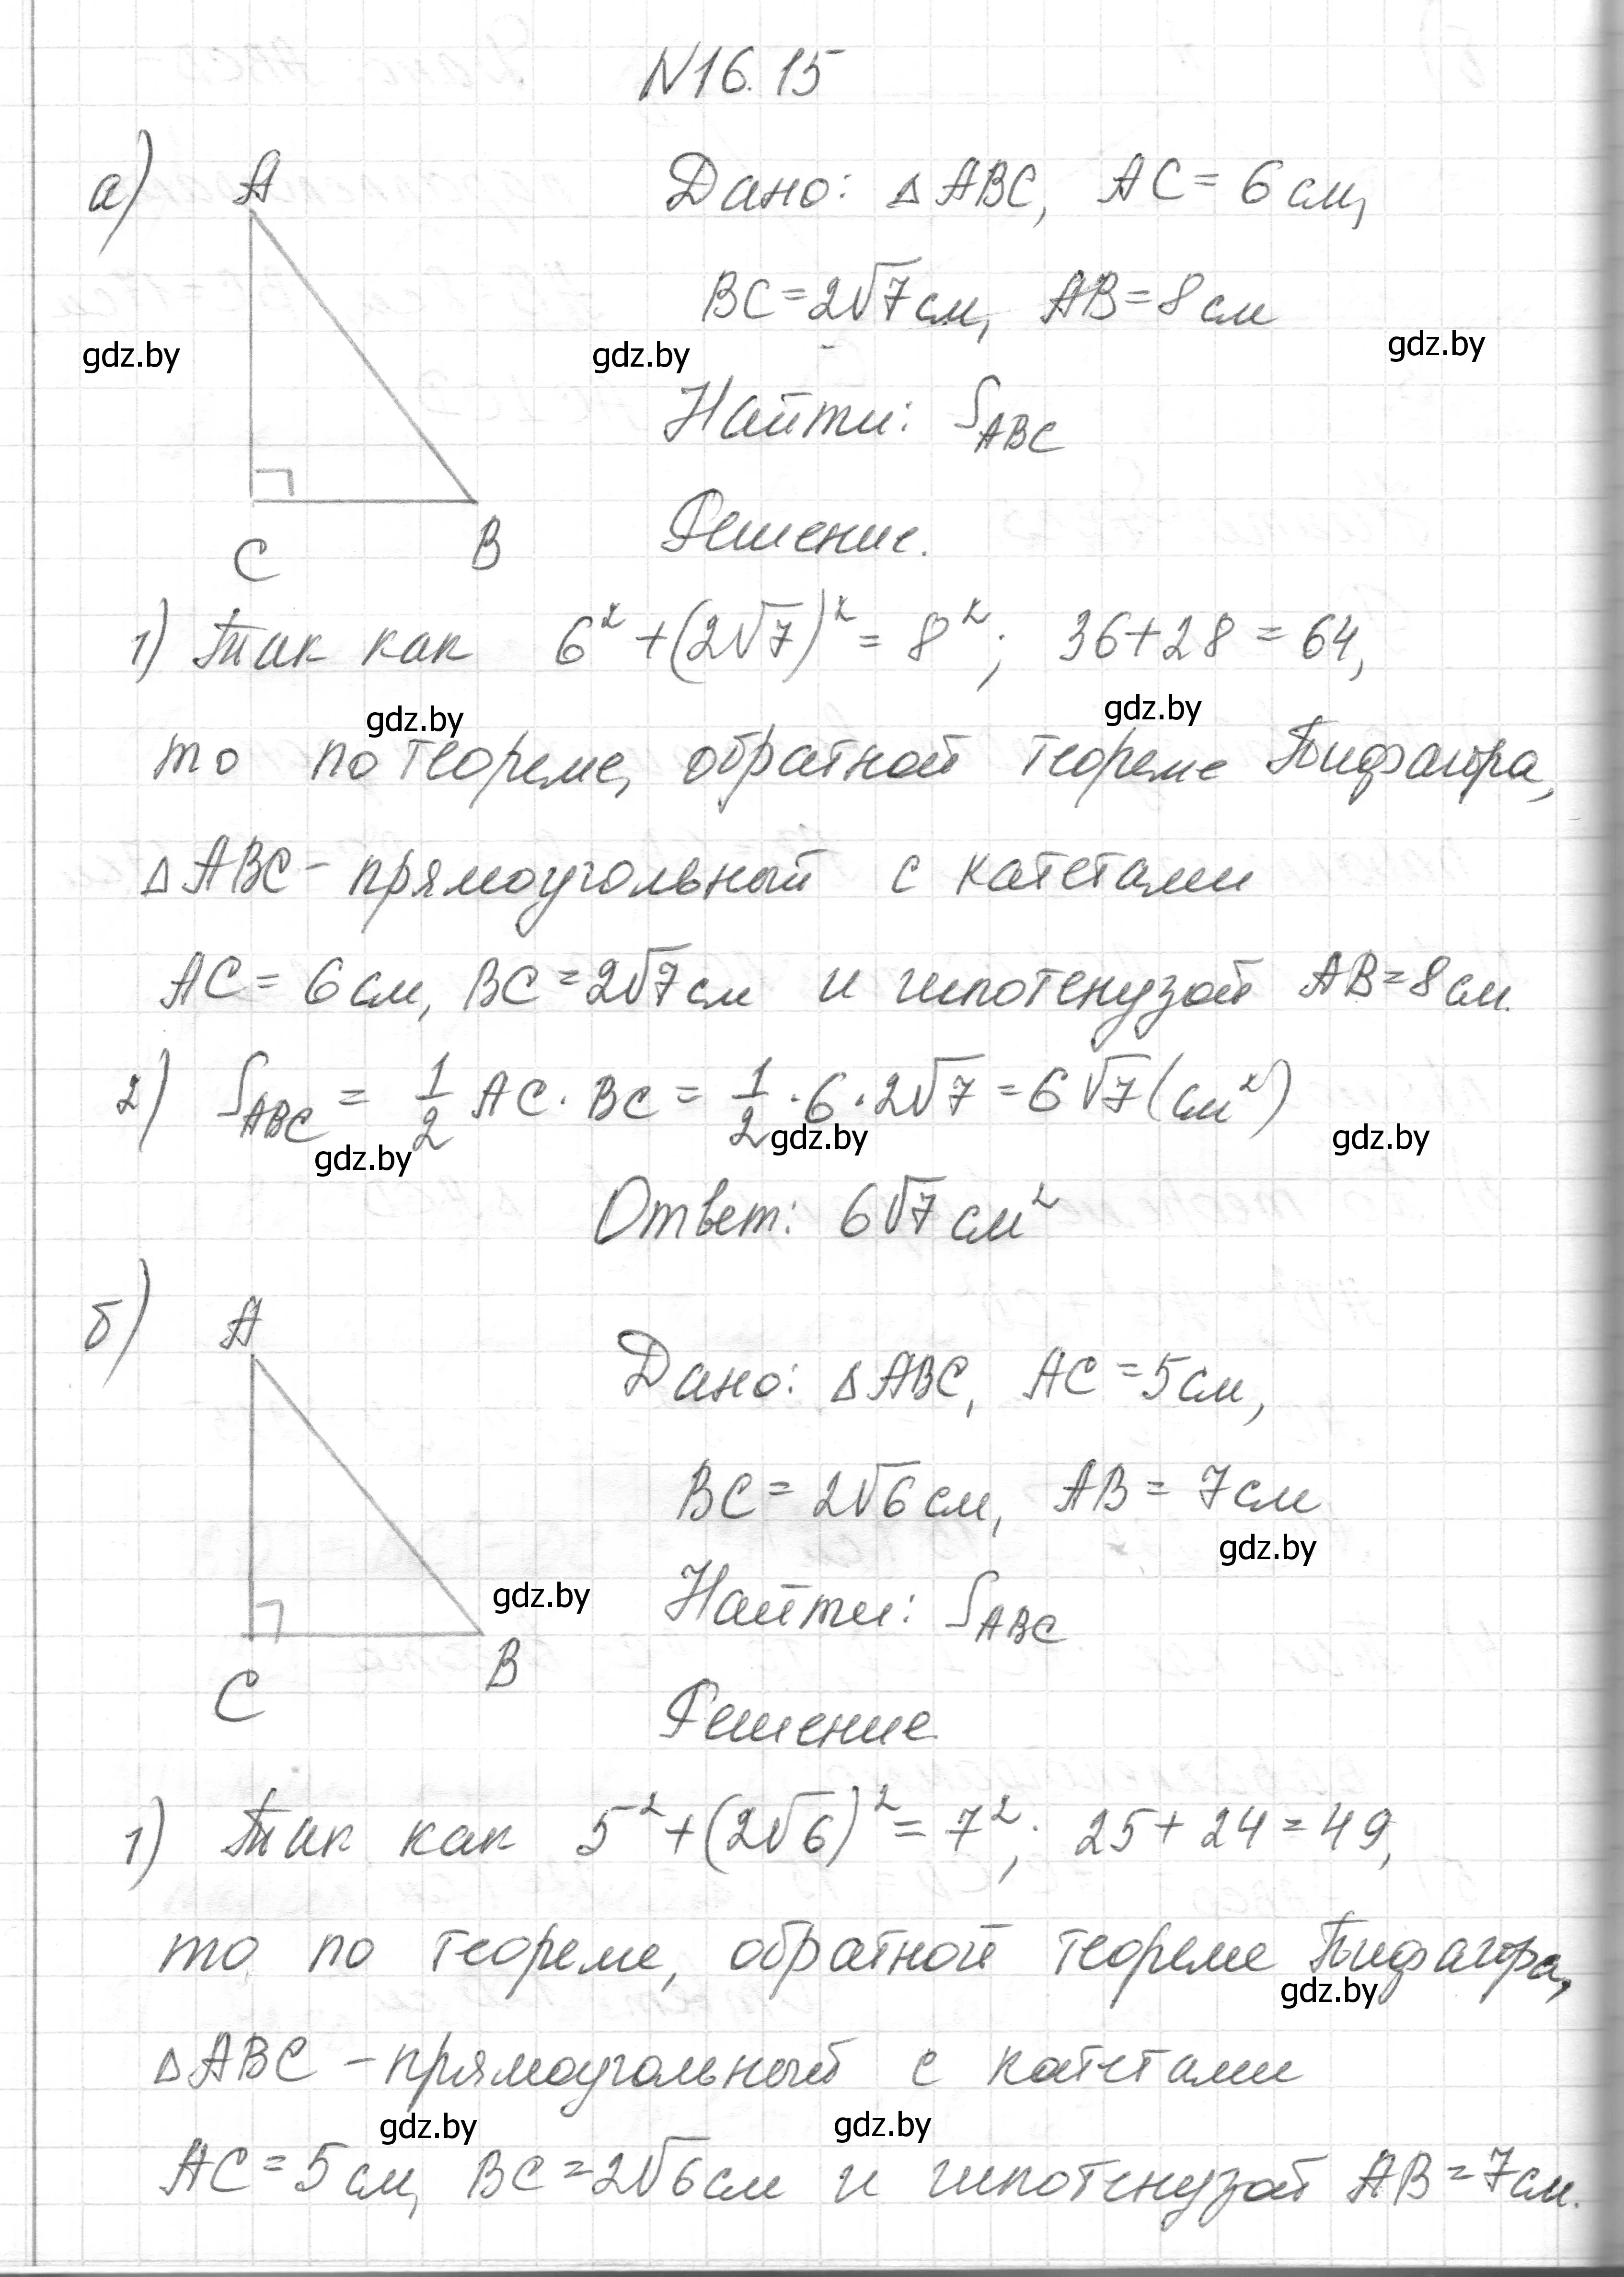 N16.15
а) A
Дано: △ABC, AC = 6 см,
BC = 2√7 см, AB = 8 см
gdz.by gdz.by gdz.by
Найти: S_ABC
C B
Решение.
1) Так как 6² + (2√7)² = 8²; 36 + 28 = 64,
gdz.by gdz.by
то по теореме, обратной теореме Пифагора,
△ABC - прямоугольный с катетами
AC = 6 см, BC = 2√7 см и гипотенузой AB = 8 см.
2) S_ABC = 1/2 AC · BC = 1/2 · 6 · 2√7 = 6√7 (см²)
gdz.by gdz.by gdz.by
Ответ: 6√7 см²
б) A
Дано: △ABC, AC = 5 см,
BC = 2√6 см, AB = 7 см
gdz.by
gdz.by
Найти: S_ABC
C B
Решение
1) Так как 5² + (2√6)² = 7²; 25 + 24 = 49,
то по теореме, обратной теореме Пифагора,
gdz.by
△ABC - прямоугольный с катетами
gdz.by gdz.by
AC = 5 см, BC = 2√6 см и гипотенузой AB = 7 см.